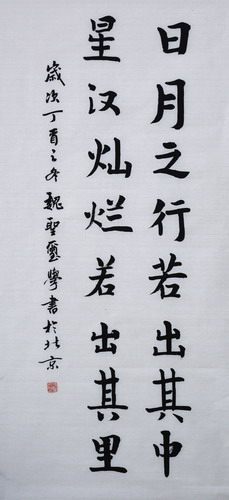 日月之行若出其中
星汉灿烂若出其里
歲次丁酉之冬魏聖璽學書於北京